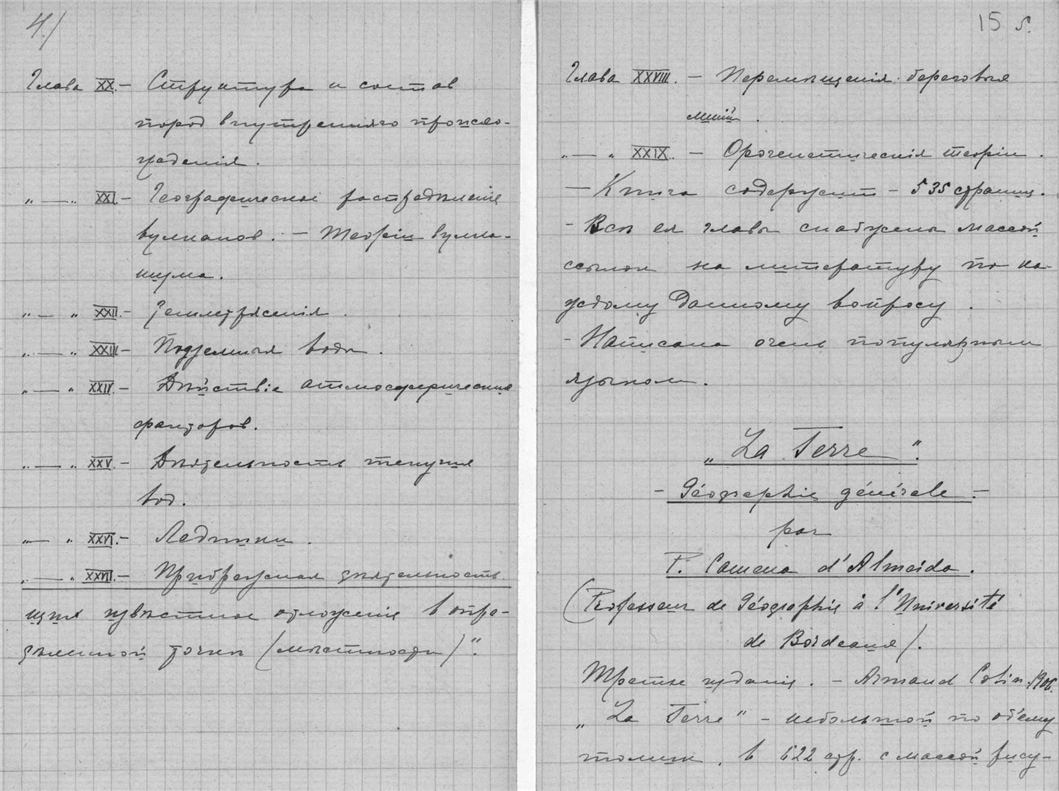 4.)
Глава XX. — Структура и состав
пород внутренняго происхо-
жденія.
„ — „ XXI. — Географическое распредѣленіе
вулкановъ. — Теоріи вулка-
низма.
„ — „ XXII. — Землетрясенія.
„ — „ XXIII. — Подземныя воды.
„ — „ XXIV. — Дѣйствіе атмосферических
факторов.
„ — „ XXV. — Дѣятельность текучих
вод.
„ — „ XXVI. — Ледники.
„ — „ XXVII. — Прибрежная дѣятельность
извѣстное отложеніе в опре-
дѣленной точкѣ (мѣстности)“
15 б.
Глава XXVIII. — Перемѣщенія береговых
линій.
„ — „ XXIX. — Орогенетическія теоріи.
— Книга содержит — 535 страниц.
- Всѣ ея главы снабжены массой
ссылок на литературу по ка-
ждому данному вопросу.
- Написана очень популярным
языком.
„La Terre“.
- Géographie générale. -
par
P. Camena d'Almeida.
(Professeur de Géographie à l'Université
de Bordeaux).
Третье изданіе. — Armand Colin. 1906.
„La Terre“ - небольшой по объему
томик, в 622 стр. с массой рису-